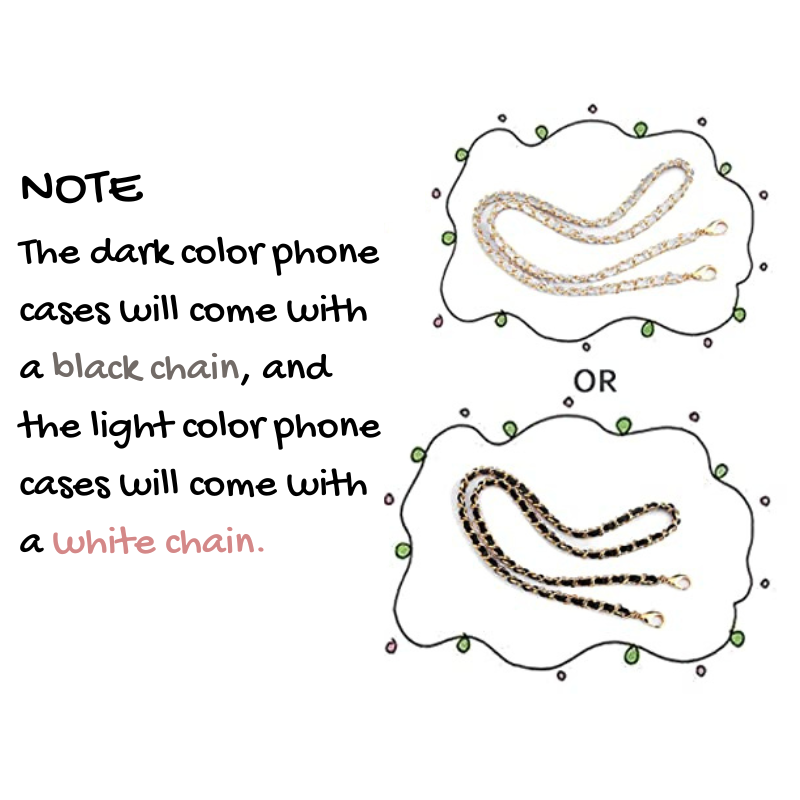 NOTE
The dark color phone
cases will come with
a black chain, and
the light color phone
cases will come with
a white chain.
OR